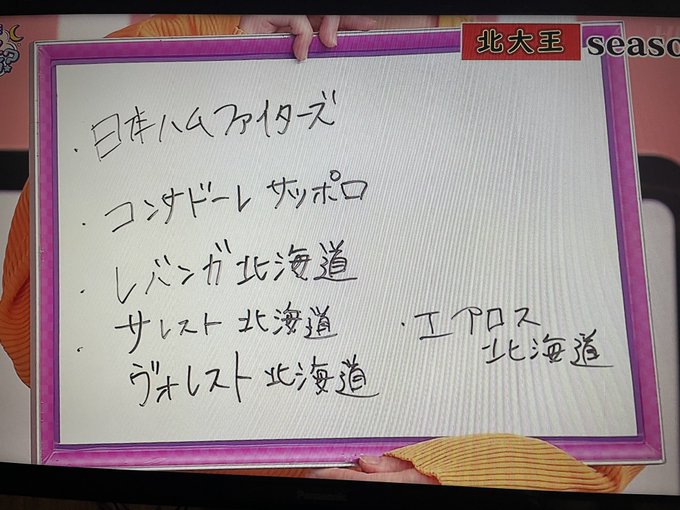 北大王 seaso
・日本ハムファイターズ
・コンサドーレ サッポロ
・レバンガ北海道
・サレスト北海道
ヴォレスト北海道
・エアロス
北海道
Panasonic